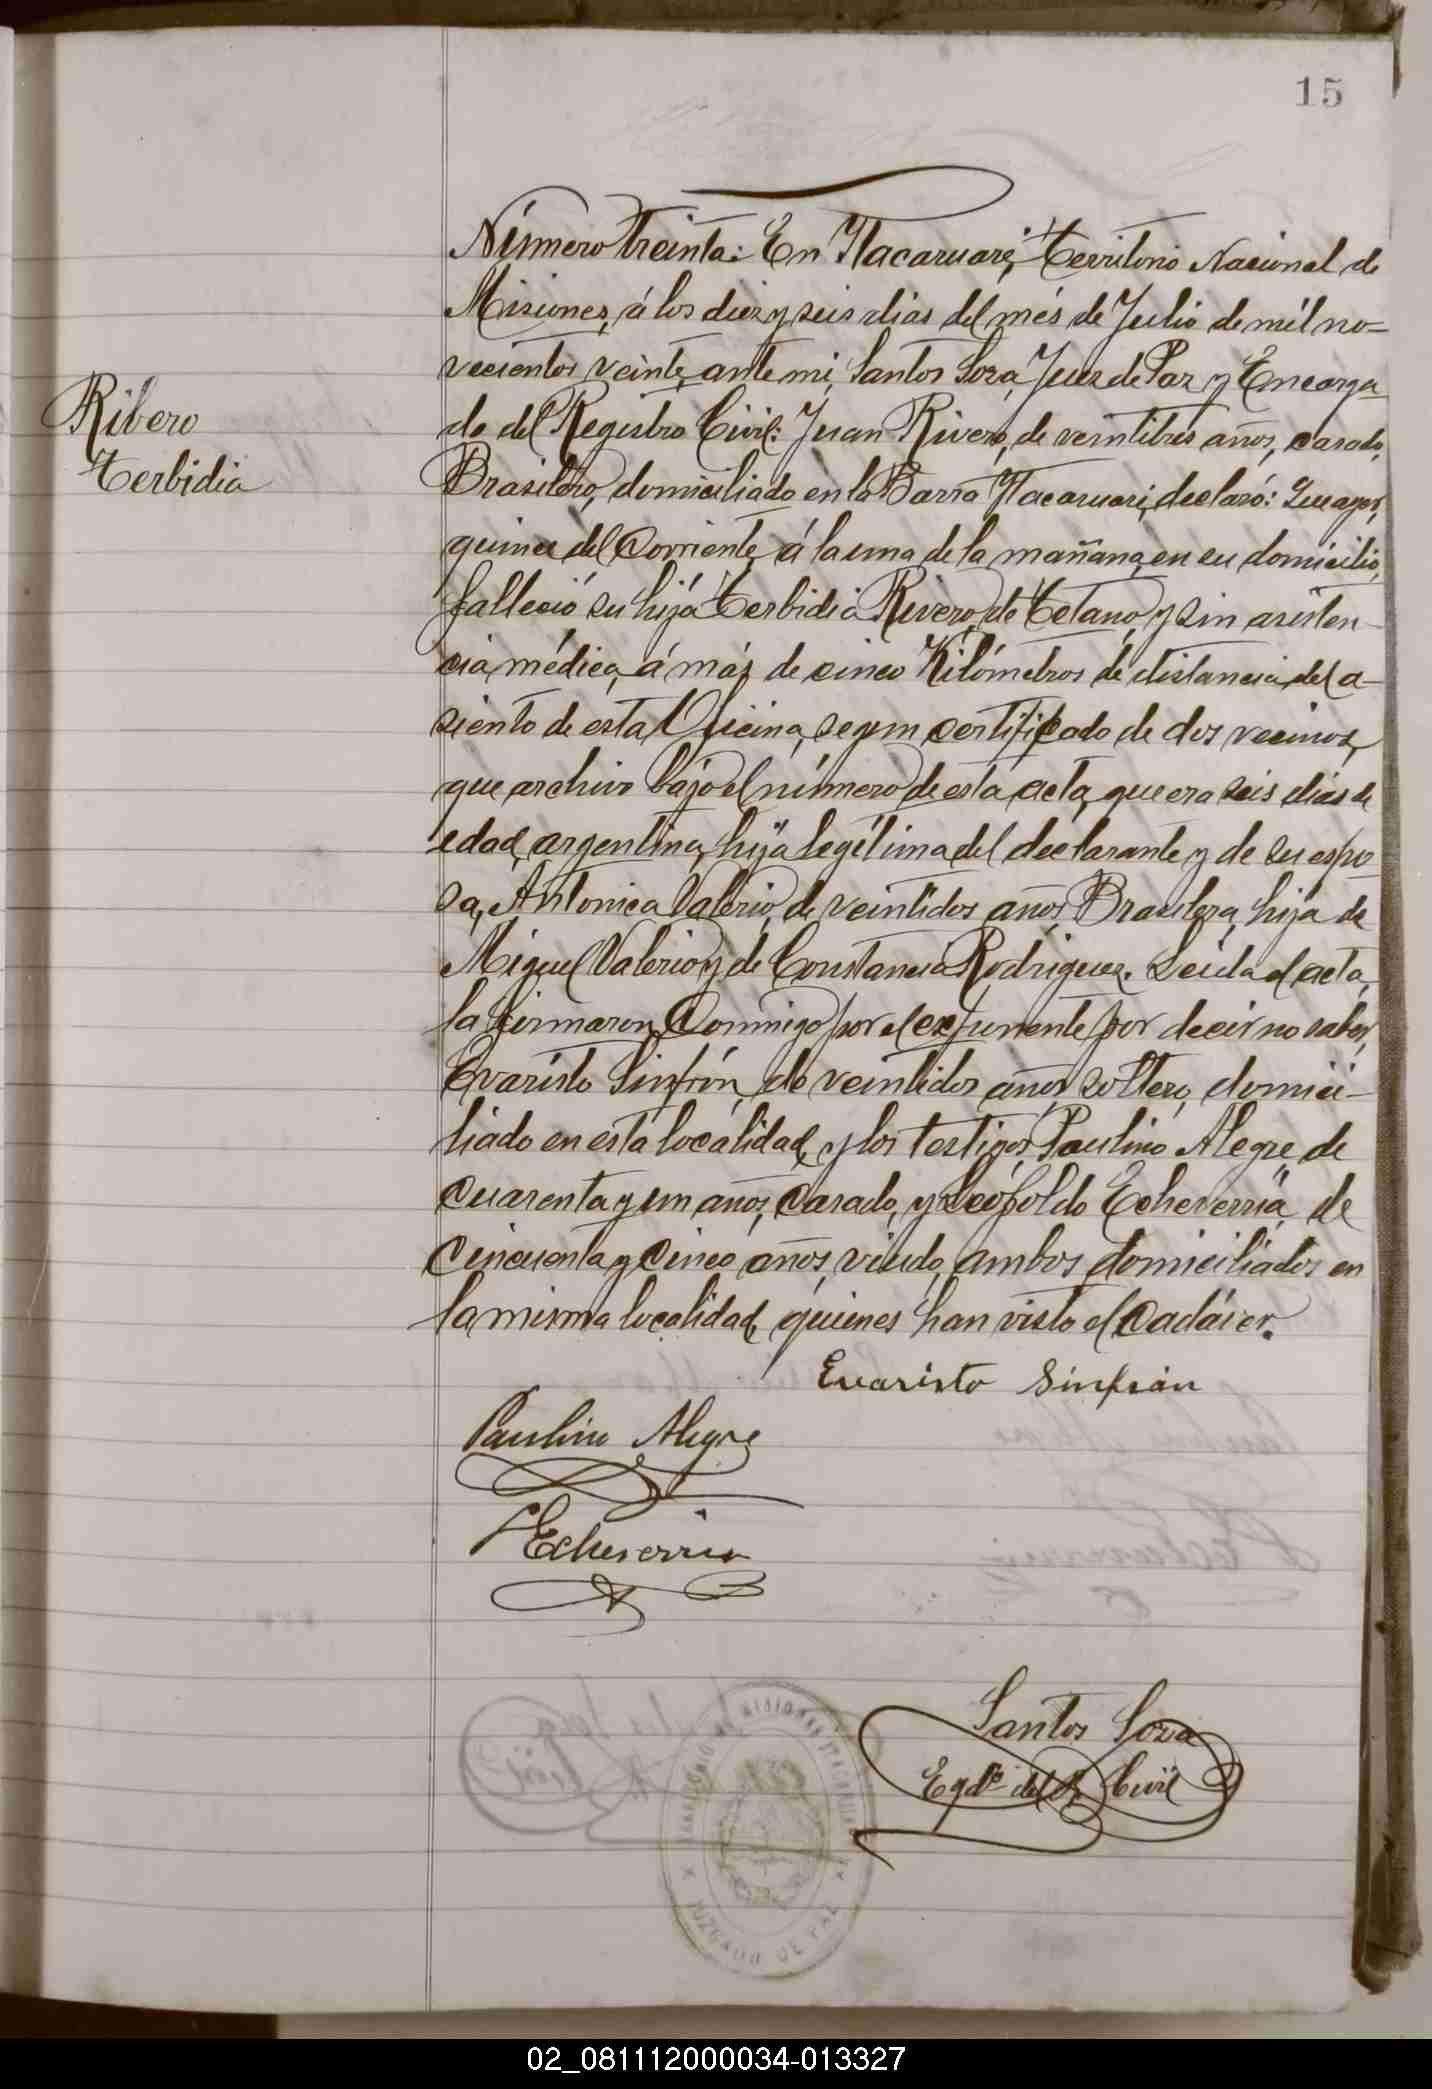 15
Número treinta: En Itacaruaré, territorio Nacional de
Misiones, á los diez y seis dias del més de Julio de mil no-
vecientos veinte, ante mi, Santos Soza, Juez de Paz y Encarga
do del Registro Civil: Juan Rivero, de veintitres años, casado,
Ribero
Terbidia
Brasilero, domiciliado en la Barra Itacaruaré, declaró: Que ayer,
quince del corriente, á la una de la mañana, en su domicilio,
falleció su hija Terbidia Rivero, de tetano, y sin asisten-
cia médica, á más de cinco Kilómetros de distancia del a-
siento de esta Oficina, segun certificado de dos vecinos,
que archivo bajo el número de esta acta, que era seis dias de
edad, argentina, hija legítima del declarante y de su espo-
sa, Antonica Valerio, de veintidos años, Brasilera, hija de
Miguel Valerio y de Constancia Rodriguez. Leida el acta,
la firmaron Conmigo por el exponente por decir no saber,
Evaristo Sinfrón, de veintidos años, soltero, domici-
liado en esta localidad, y los testigos, Paulino Alegre de
cuarenta y un años, casado, y Leopoldo Echeverria, de
cincuenta y cinco años, viudo, ambos domiciliados en
la misma localidad, quienes han visto el Cadáver.
Evaristo Sinfrán
Paulino Alegre
L Echeverria
Santos Soza
Egdo del R. Civil
JUZGADO DE PAZ
02_081112000034-013327